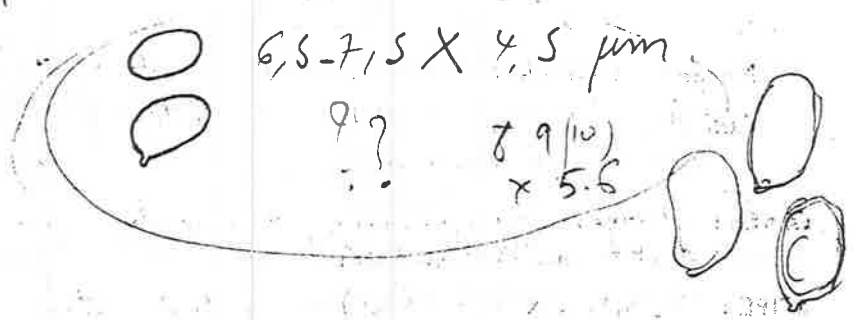 6,5-7,5 X 4,5 µm
? ?
8 9 (10)
x 5.6